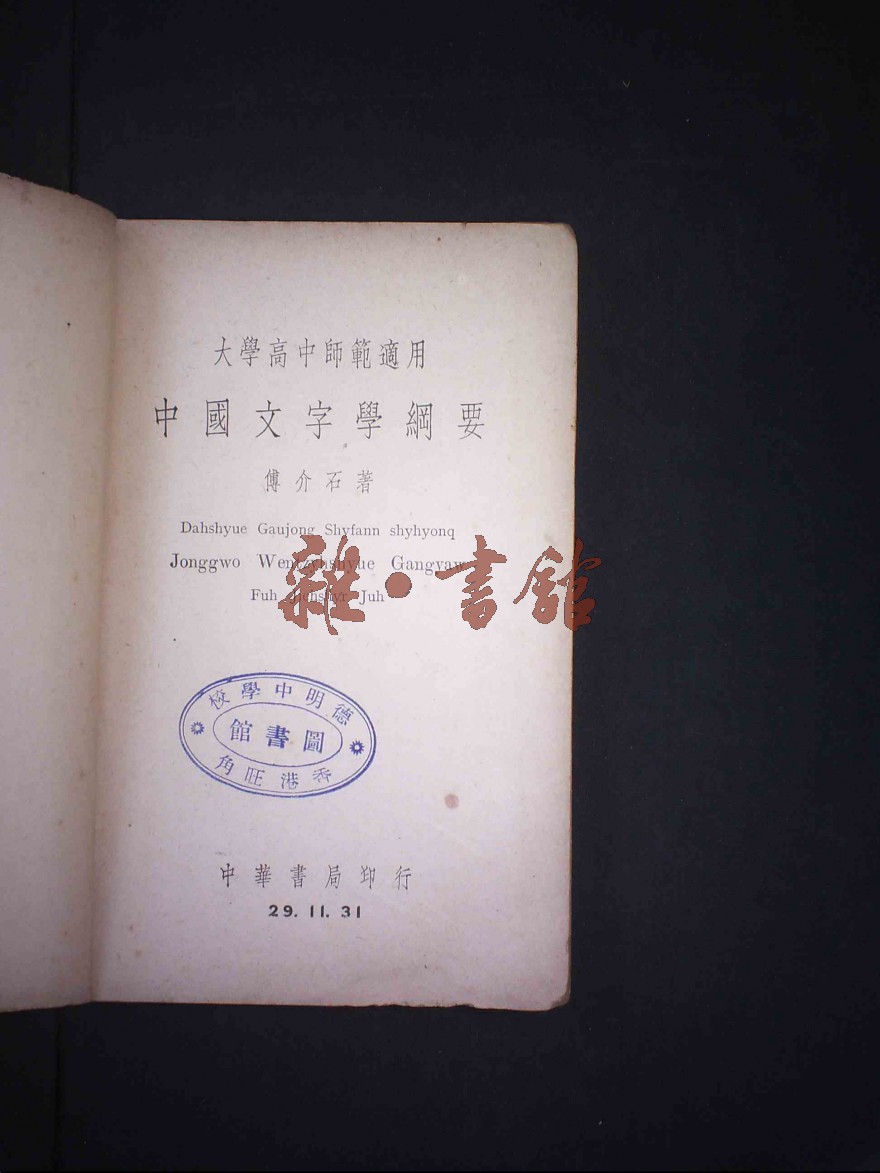 大學高中師範適用
中國文字學綱要
傅介石著
Dahshyue Gaujong Shyfann shyhyonq
Jonggwo Wentzyhshyue Gangyaw
Fuh Jiehshyr Juh
雜·書館
德明中學校
圖書館
香港旺角
中華書局印行
29. 11. 31